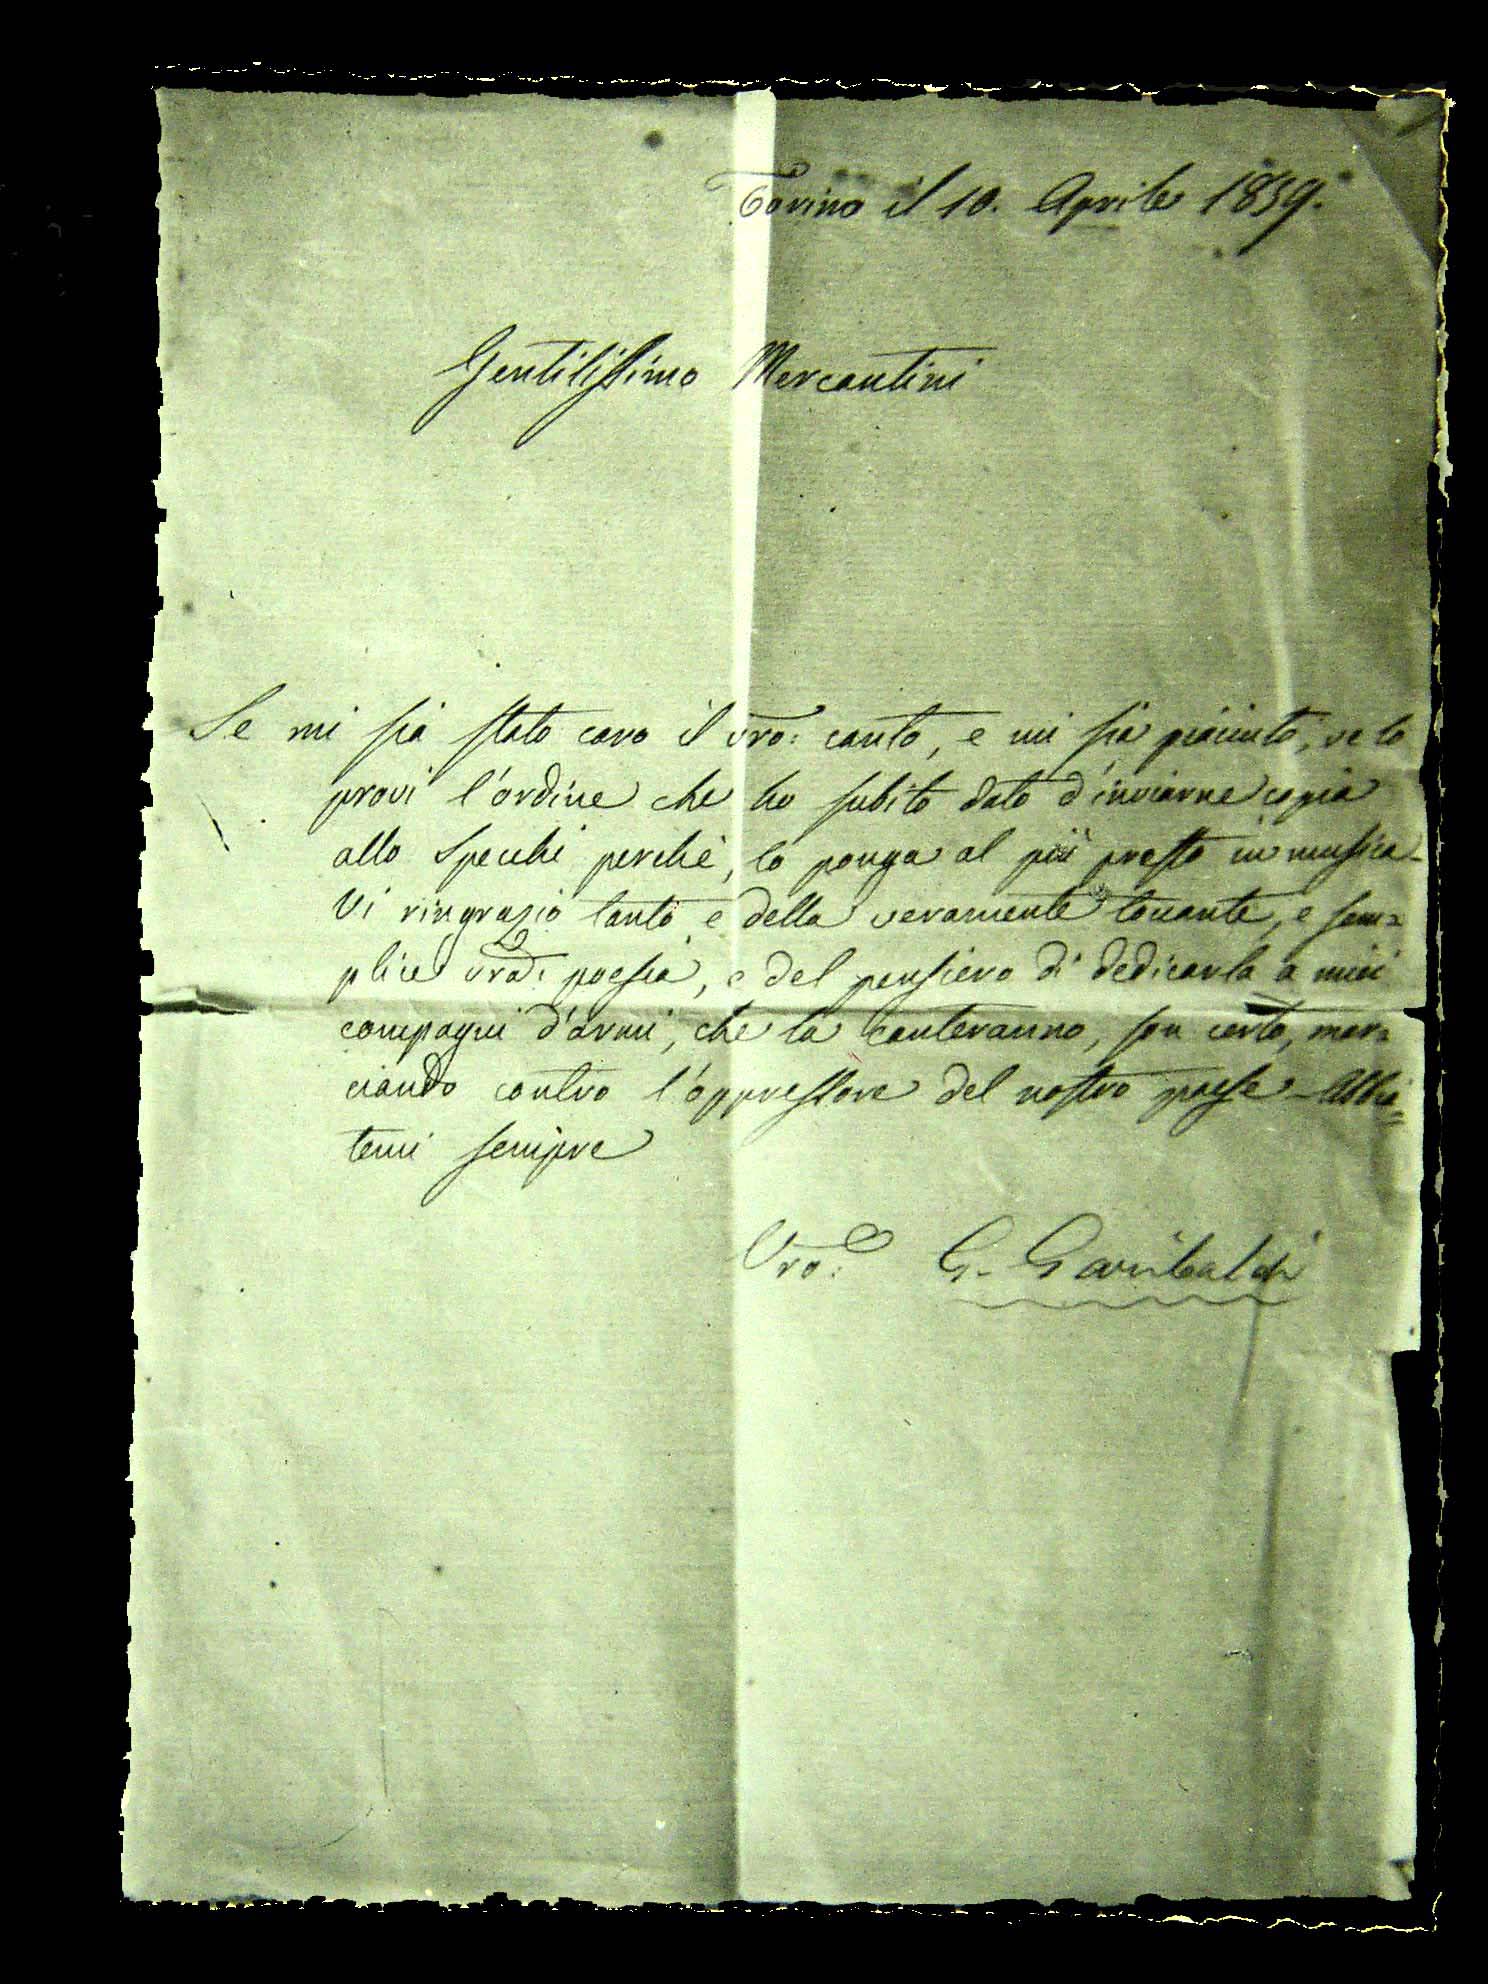 Torino il 10. Aprile 1859.
Gentilissimo Mercantini
Se mi sia stato caro il vro: canto, e mi sia piaciuto, ve lo
provi l'ordine che ho subito dato d'inviarne copia
allo Specchi perchè, lo ponga al più presto in mussica -
Vi ringrazio tanto e della veramente toccante, e sem=
plice vra: poesia, e del pensiero di dedicarla a miei
compagni d'armi, che la canteranno, son certo, mar=
ciando contro l'oppressore del nostro paese - Abbia=
temi sempre
Vro: G. Garibaldi